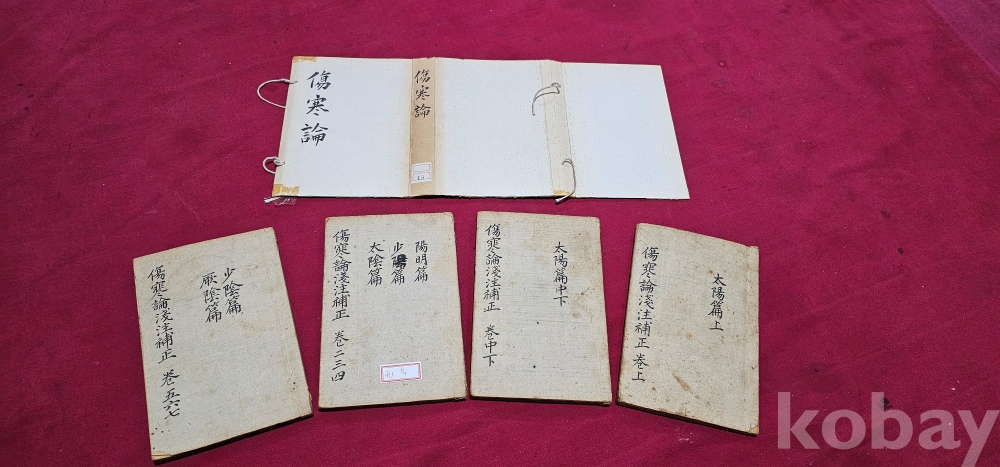 傷寒論
傷寒論
15
太陽篇上
傷寒論淺注補正 卷上
太陽篇中下
傷寒論淺注補正 卷中下
陽明篇
少陽篇
太陰篇
傷寒論淺注補正 卷二三四
少陰篇
厥陰篇
傷寒論淺注補正 卷五六七
kobay